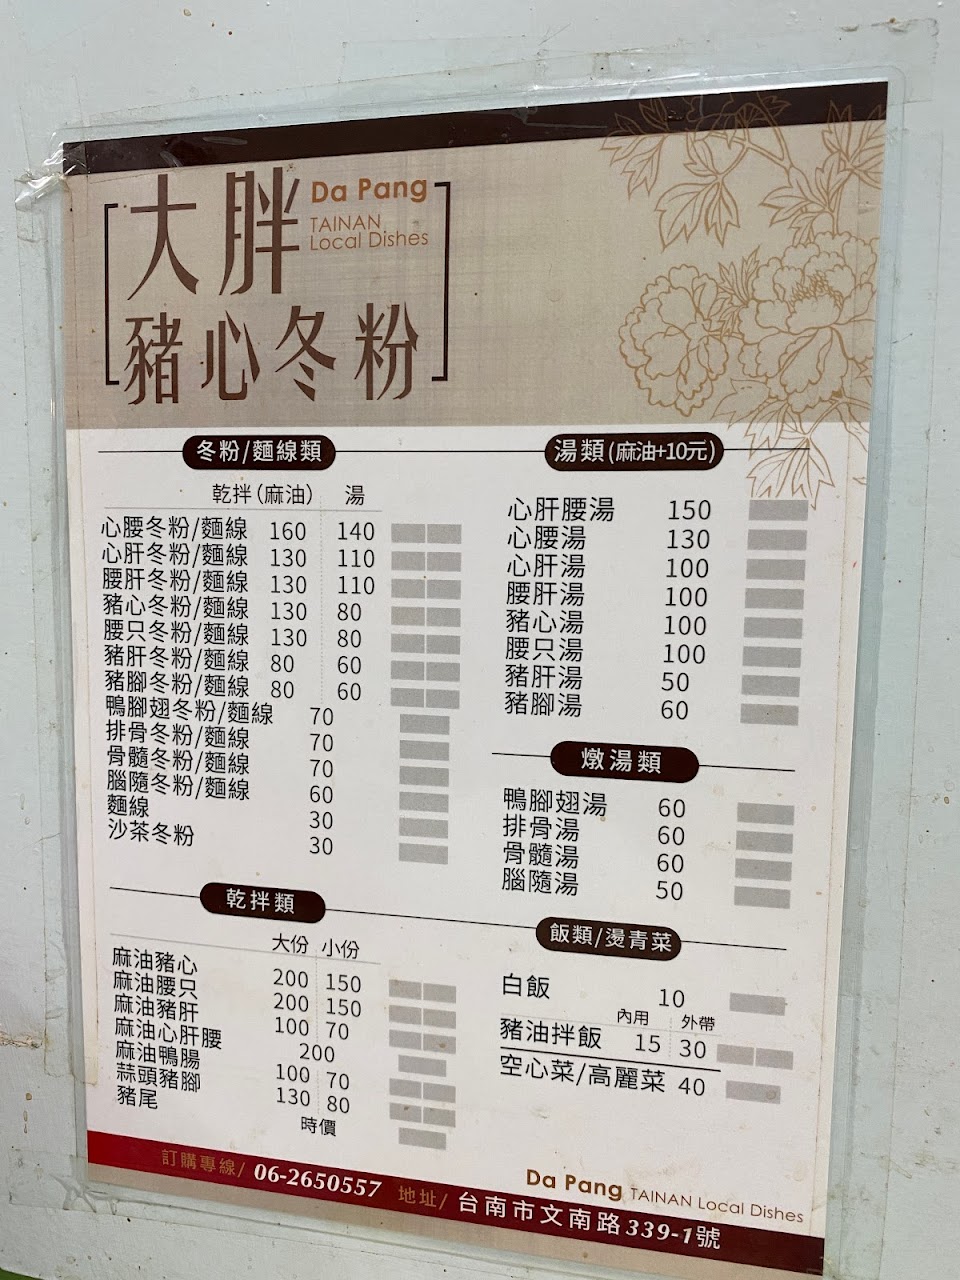 大胖 Da Pang
TAINAN
Local Dishes
豬心冬粉
冬粉/麵線類
乾拌(麻油) 湯
心腰冬粉/麵線 160 140
心肝冬粉/麵線 130 110
腰肝冬粉/麵線 130 110
豬心冬粉/麵線 130 80
腰只冬粉/麵線 130 80
豬肝冬粉/麵線 80 60
豬腳冬粉/麵線 80 60
鴨腳翅冬粉/麵線 70
排骨冬粉/麵線 70
骨髓冬粉/麵線 70
腦隨冬粉/麵線 60
麵線 30
沙茶冬粉 30
乾拌類
大份 小份
麻油豬心 200 150
麻油腰只 200 150
麻油豬肝 100 70
麻油心肝腰 200
麻油鴨腸 100 70
蒜頭豬腳 130 80
豬尾 時價
湯類(麻油+10元)
心肝腰湯 150
心腰湯 130
心肝湯 100
腰肝湯 100
豬心湯 100
腰只湯 100
豬肝湯 50
豬腳湯 60
燉湯類
鴨腳翅湯 60
排骨湯 60
骨髓湯 60
腦隨湯 50
飯類/燙青菜
白飯 10
內用 外帶
豬油拌飯 15 30
空心菜/高麗菜 40
Da Pang TAINAN Local Dishes
訂購專線/ 06-2650557 地址/ 台南市文南路339-1號